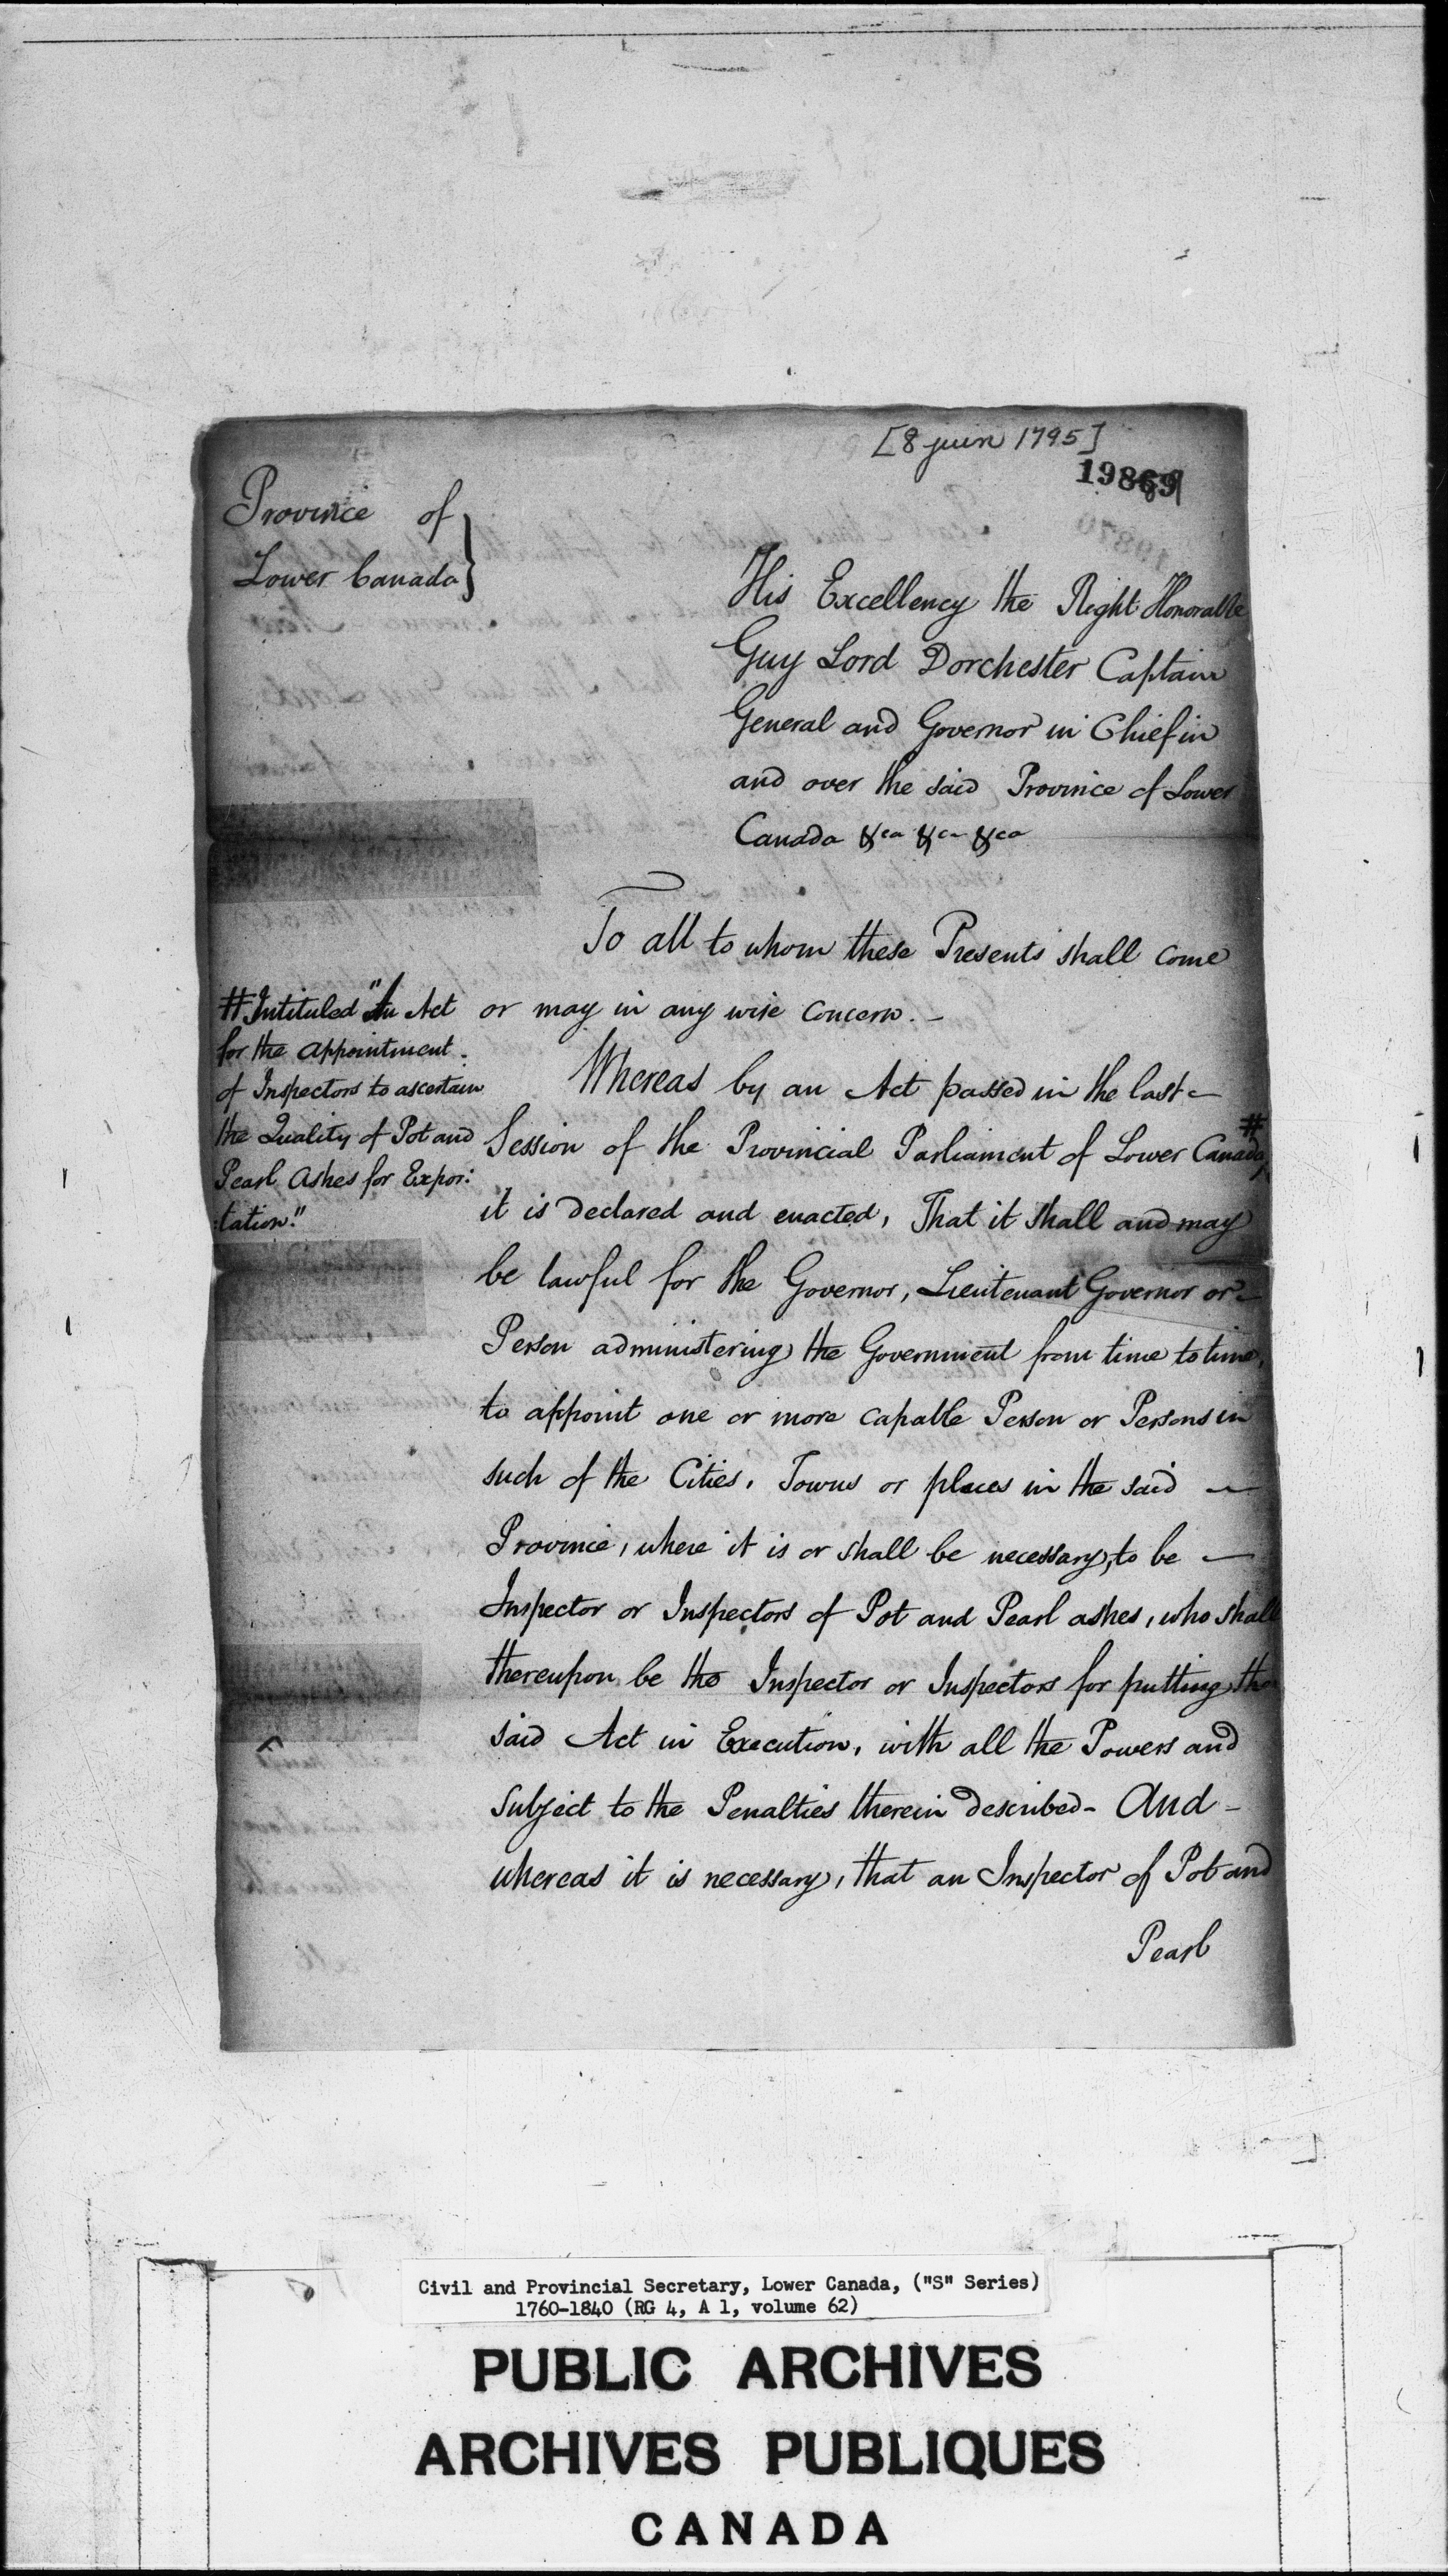 [8 juin 1795]
19869
Province of
Lower Canada}
His Excellency the Right Honorable
Guy Lord Dorchester Captain
General and Governor in Chief in
and over the said Province of Lower
Canada &ca &ca &ca
To all to whom these Presents shall come
or may in any wise concern. -
# Intituled "An Act
for the appointment
of Inspectors to ascertain
the Quality of Pot and
Pearl Ashes for Expor:
:tation."
Whereas by an Act passed in the last -
Session of the Provincial Parliament of Lower Canada, #
it is declared and enacted, That it shall and may
be lawful for the Governor, Lieutenant Governor or -
Person administering the Government from time to time,
to appoint one or more capable Person or Persons in
such of the Cities, Towns or places in the said -
Province, where it is or shall be necessary, to be -
Inspector or Inspectors of Pot and Pearl ashes, who shall
thereupon be the Inspector or Inspectors for putting the
said Act in Execution, with all the Powers and
subject to the Penalties therein described - And -
whereas it is necessary, that an Inspector of Pot and
Pearl
Civil and Provincial Secretary, Lower Canada, ("S" Series)
1760-1840 (RG 4, A 1, volume 62)
PUBLIC ARCHIVES
ARCHIVES PUBLIQUES
CANADA